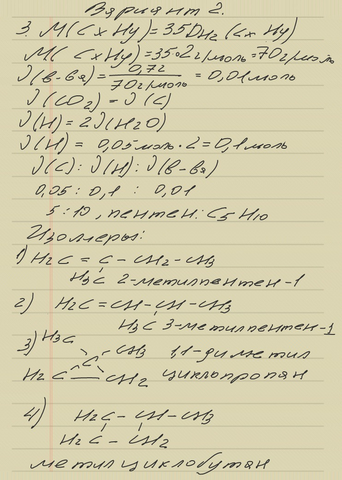 Вариант 2.
3. M(CxHy)=35D_H2(CxHy)
M(CxHy)=35·2г/моль=70г/моль
ν(в-ва)=0,7г/70г/моль=0,01моль
ν(CO2)=ν(C)
ν(H)=2ν(H2O)
ν(H)= 0,05моль·2=0,1моль
ν(C):ν(H):ν(в-ва)
0,05:0,1:0,01
5:10, пентен: C5H10
Изомеры:
1) H2C=C-CH2-CH3
H3C 2-метилпентен-1
2) H2C=CH-CH-CH3
H3C 3-метилпентен-1
3) H3C
C CH3 1,1-диметил
H2C — CH2 циклопропан
4) H2C-CH-CH3
H2C-CH2
метилциклобутан